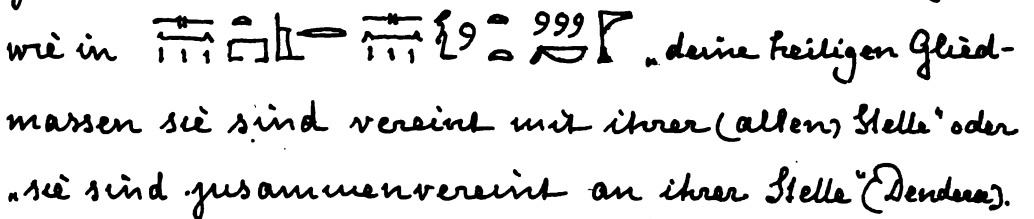 wie in „deine heiligen Glied-
massen sie sind vereint mit ihrer (alten) Stelle“ oder
„sie sind zusammenvereint an ihrer Stelle“ (Dendera).